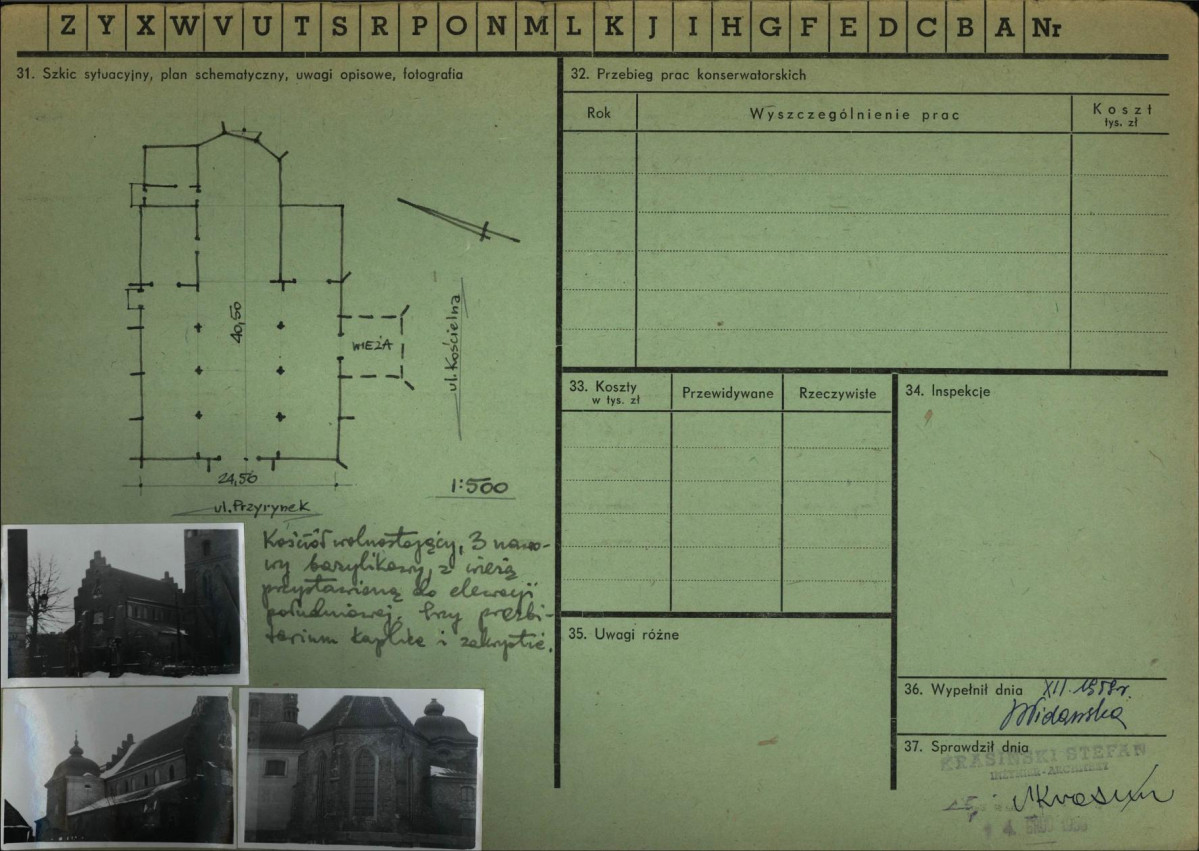 Z Y X W V U T S R P O N M L K J I H G F E D C B A Nr
31. Szkic sytuacyjny, plan schematyczny, uwagi opisowe, fotografia
40,50
WIEŻA
ul. Kościelna
24,50
1:500
ul. Przyrynek
Kościół wolnostojący, 3 nawo-
wy bazylikowy, z wieżą
przystawioną do elewacji
południowej. Przy prezbi-
terium kaplice i zakrystie.
32. Przebieg prac konserwatorskich
Rok
Wyszczególnienie prac
Koszt
tys. zł
33. Koszty
w tys. zł
Przewidywane
Rzeczywiste
34. Inspekcje
35. Uwagi różne
36. Wypełnił dnia XII. 1959r.
Widawska
37. Sprawdził dnia
KRASIŃSKI STEFAN
INŻYNIER-ARCHITEKT
14. GRUD 1959